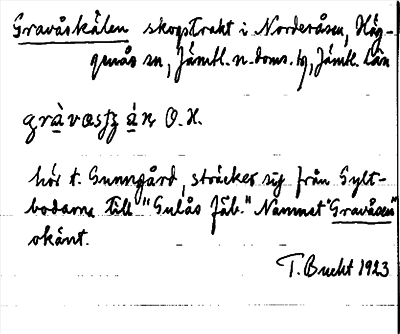 Gravåskälen skogstrakt i Norderåsen, Häg-
genås sn, Jämtl. n. doms. tg, Jämtl. län
O. H.
hör t. Gunngård, sträcker sig från Sylt-
bodarna till "Gulås fäb." Namnet "Gravåsen"
okänt.
T. Bucht 1923